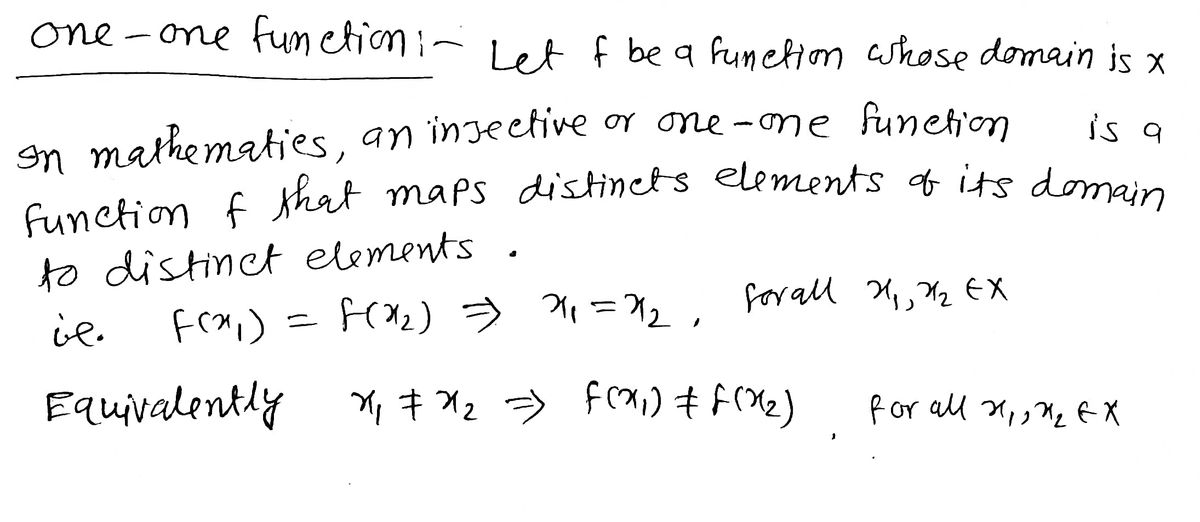 one-one function:- Let f be a function whose domain is X
In mathematics, an injective or one-one function is a
function f that maps distincts elements of its domain
to distinct elements.
i.e. f(x₁) = f(x₂) ⇒ x₁ = x₂, for all x₁, x₂ ∈ X
Equivalently x₁ ≠ x₂ ⇒ f(x₁) ≠ f(x₂), for all x₁, x₂ ∈ X